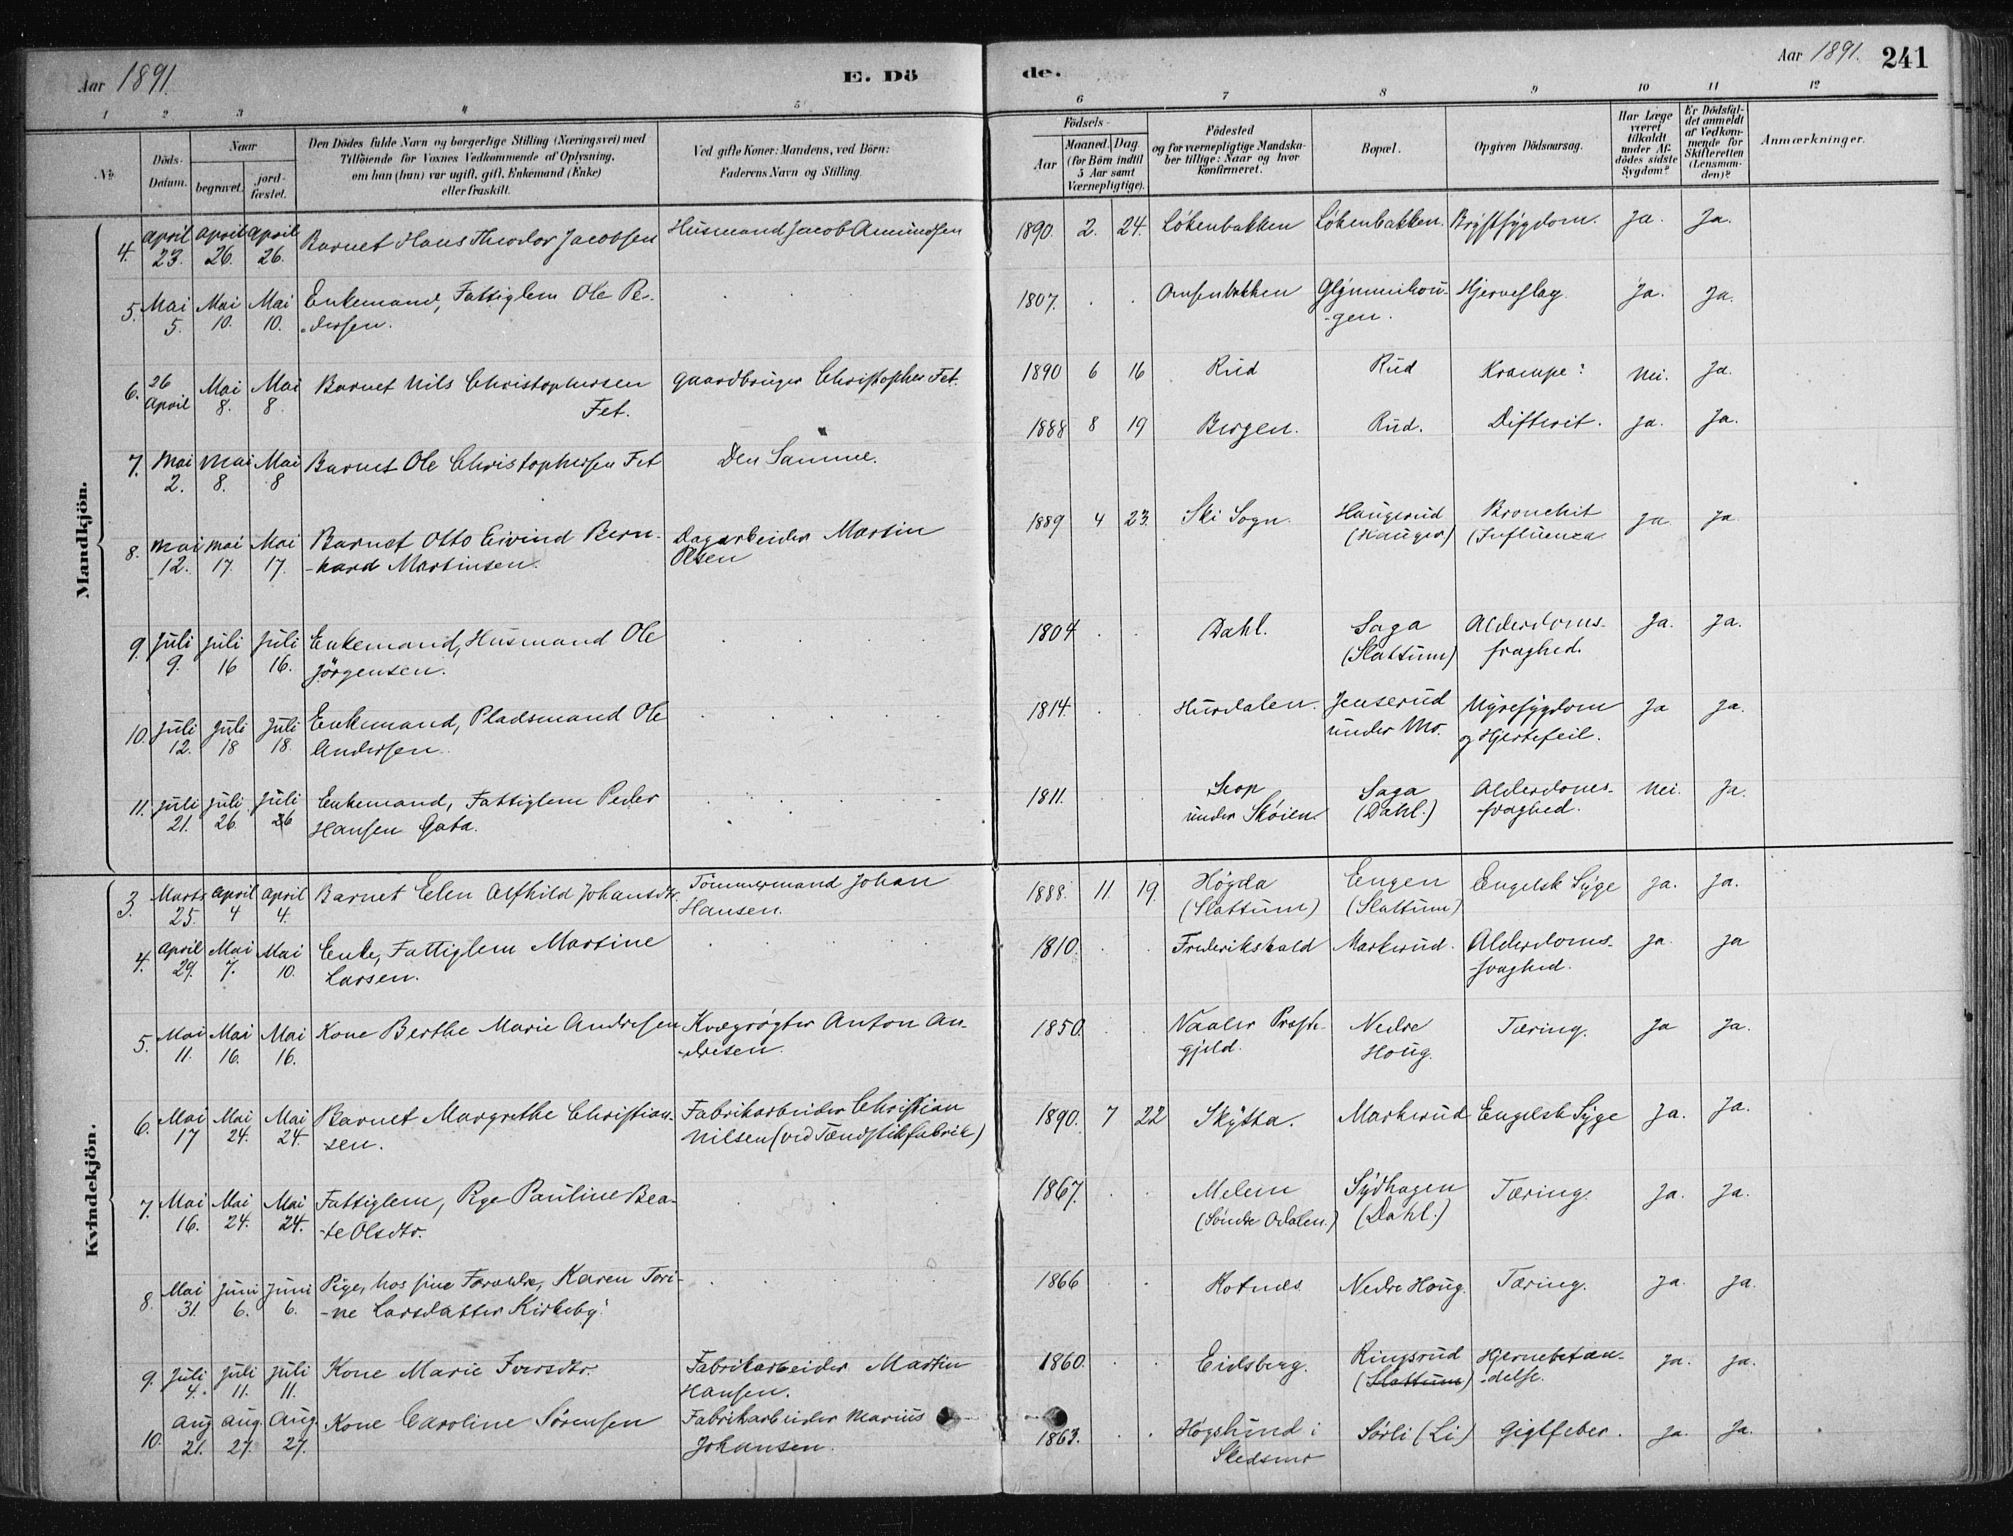 Aar 1891.
E. Dö
de.
Aar 1891. 241
1 2 3 4 5 6 7 8 9 10 11 12
No.
Døds-Datum.
Naar
begravet.
jord-fæstet.
Den Dödes fulde Navn og borgerlige Stilling (Næringsvei) med
Tilföiende for Voxnes Vedkommende af Oplysning,
om han (hun) var ugift, gift, Enkemand (Enke)
eller fraskilt.
Ved gifte Koner: Mandens, ved Börn:
Faderens Navn og Stilling.
Födsels-
Aar
Maaned. Dag
(for Börn indtil
5 Aar samt
Værnepligtige).
Födested
og for værnepligtige Mandska-
ber tillige: Naar og hvor
konfirmeret.
Bopæl.
Opgiven Dödsaarsag.
Har Læge
været
tilkaldt
under Af-
dödes sidste
Sygdom?
Er Dödsfal-
det anmeldt
af Vedkom-
mende for
Skifteretten
(Lensman-
den)?
Anmærkninger.
Mandkjön.
4. April 23. April 26. April 26. Barnet Hans Theodor Jacobsen Husmand Jacob Amundsen 1890. 2. 24. Løkenbakken Løkenbakken. Brystsygdom. Ja. Ja.
5. Mai 5. Mai 10. Mai 10. Enkemand, Fattiglem Ole Pe-
dersen. 1807. Glymmihou-
-gen. Hjerneslag Ja. Ja.
6. 26 April Mai 8. Mai 8. Barnet Nils Christophersen
Fet. Gaardbruger Christopher Fet. 1890 6 16 Rud Rud Krampe: Nei. Ja.
7. Mai 2. Mai 8. Mai 8 Barnet Ole Christophersen Fet Den Samme. 1888 8 19 Bergen. Rud. Difterit. Ja. Ja.
8. Mai 12. Mai 17. Mai 17. Barnet Otto Eivind Bern-
-hard Martinsen. Dagarbeider Martin
Olsen 1889 4 23. Ski Sogn. Haugerud
(Hauger) Bronchit
(Influenza Ja. Ja
9. Juli 9. Juli 16 Juli 16. Enkemand, Husmand Ole
Jörgensen. 1804 Dahl. Saga
(Slattum) Alderdoms-
svaghed. Ja. Ja.
10. Juli 12. Juli 18 Juli 18. Enkemand, Pladsmand Ole
Andersen. 1814. Hurdalen. Jenserud
under Mo. Nyresygdom
og Hjertefeil. Ja Ja.
11. Juli 21. Juli 26. Juli 26 Enkemand, Fattiglem Peder
Hansen Gata. 1811. under Skøien. Saga
(Dahl.) Alderdoms-
svaghed. Nei. Ja.
Kvindekjön.
3. Marts 25. April 4 April 4. Barnet Elen Alfhild Johansdtr. Tömmermand Johan
Hansen. 1888. 11. 19. Høgda
(Slattum) Engen
(Slattum) Engelsk Syge Ja. Ja.
4. April 29. Mai 7. Mai 10. Enke, Fattiglem Martine
Larsen. 1810. Frederikshald Markerud. Alderdoms-
-svaghed. Ja. Ja
5. Mai 11. Mai 16. Mai 16. Kone Berthe Marie Andresen Kvægrøgter Anton An-
-dresen. 1850. Vaaler Præste
gjeld. Nedre
Houg. Tæring. Ja Ja.
6. Mai 17 Mai 24. Mai 24. Barnet Margrethe Christian-
sen. Fabrikarbeider Christian
Nilsen (ved Tændstikfabrik) 1890. 7 22 Skytta. Markerud Engelsk Syge Ja. Ja.
7. Mai 16. Mai 24. Mai 24. Fattiglem, Pige Pauline Bea-
-te Olsdtr. 1867. Melem
(Søndre Odalen.) Sydhagen
(Dahl.) Tæring. Ja. Ja.
8. Mai 31. Juni 6. Juni 6. Pige, hos sine Forældre, Karen Tori-
-ne Larsdatter Kirkeby. 1866 Kotnes Nedre Houg. Tæring. Ja. Ja.
9. Juli 4. Juli 11. Juli 11. Kone Marie Iversdtr. Fabrikarbeider Martin
Hansen. 1860. Eidsberg. Ringsrud
(Slattum) Hjernebetæn-
delse. Ja. Ja.
10. Aug 21. Aug. 27. Aug. 27. Kone Caroline Sørensen Fabrikarbeider Marius
Johansen. 1863. Høgslund i
Skedsmo Sørli (Li) Gigtfeber. Ja. Ja.